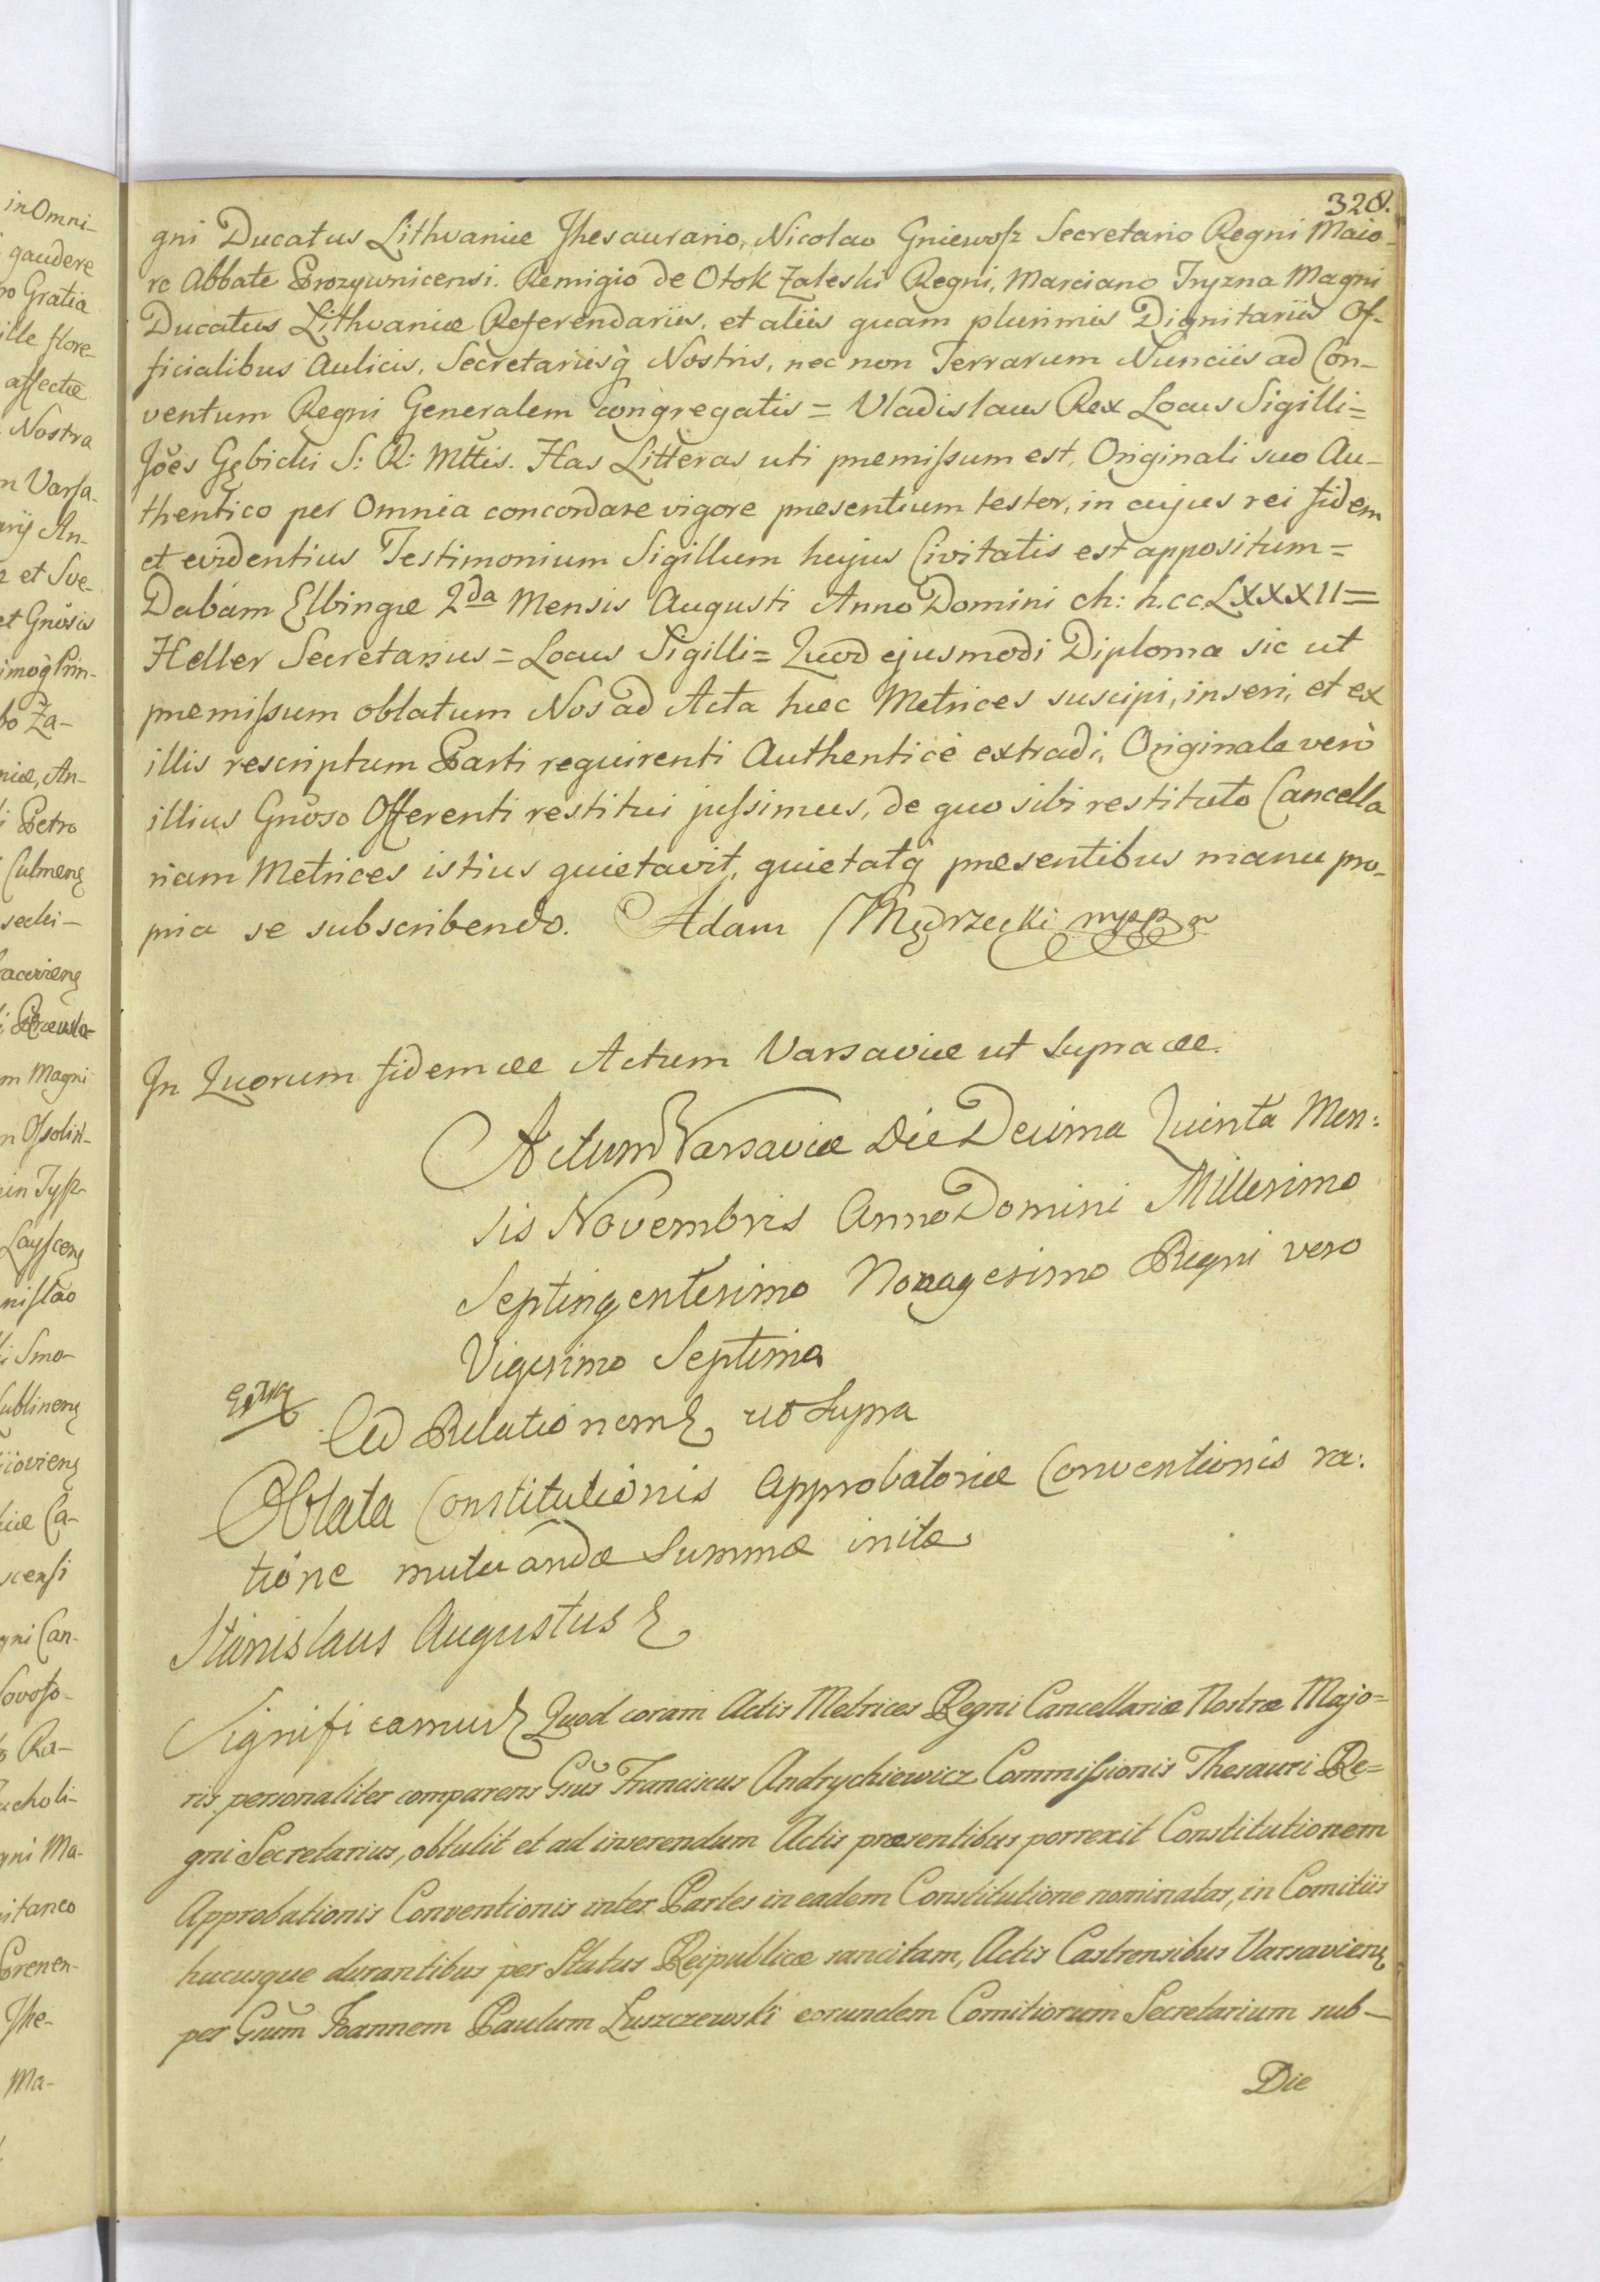 in Omni-
gaudere
Gratia
ille flore-
affectæ
Nostra
Varsa-
An-
et Sve-
et Gnosis
Prin-
Za-
An-
Petro
Culmens
secki-
Magni
Ossolin-
Smo-
Lublinens
Ca-
gni Can-
Ra-
gni Ma-
Ma-
328.
gni Ducatus Lithvaniæ Thesaurario, Nicolao Gniewosz Secretario Regni Maio-
re Abbate Prozywnicensi. Remigio de Otok Zaleski Regni, Marciano Tryzna Magni
Ducatus Lithvaniæ Referendariis, et aliis quam plurimis Dignitariis Of-
ficialibus Aulicis, Secretariisq̃ Nostris, nec non Terrarum Nunciis ad Con-
ventum Regni Generalem congregatis = Vladislaus Rex Locus Sigilli =
Joẽs Gębicki S: R: Mttis. Has Litteras uti præmissum est, Originali suo Au-
thentico per Omnia concordare vigore præsentium testor, in cujus rei fidem
et evidentius Testimonium Sigillum hujus Civitatis est appositum =
Dabam Elbingæ 2da Mensis Augusti Anno Domini ch: h.cc.LXXXII =
Heller Secretarius = Locus Sigilli = Quod ejusmodi Diploma sic ut
præmissum oblatum Nos ad Acta hæc Metrices suscipi, inseri, et ex
illis rescriptum Parti requirenti Authenticè extradi, Originale verò
illius Gnõso Offerenti restitui jussimus, de quo sibi restituto Cancella
riam Metrices istius quietavit, quietatq̃ præsentibus manu pro-
pria se subscribendo. Adam Mędrzecki mpp
In Quorum fidem &c Actum Varsaviæ ut Supra &c.
Actum Varsaviæ Die Decima Quinta Men:
sis Novembris Anno Domini Millesimo
Septingentesimo Nonagesimo Regni vero
Vigesimo Septimo
Ad Relationem& ut Supra
Oblata Constitutionis Approbatoriæ Conventionis ra:
tione mutuandæ Summæ initæ
Stanislaus Augustus &
Significamus& Quod coram Actis Metrices Regni Cancellariæ Nostræ Majo=
ris personaliter comparens Gnũs Franciscus Andrychiewicz Commissionis Thesauri Re=
gni Secretarius, obtulit et ad inserendum Actis præsentibus porrexit Constitutionem
Approbationis Conventionis inter Partes in eadem Constitutione nominatas, in Comitiis
hucusque durantibus per Status Reipublicæ sancitam, Actis Castrensibus Varsaviens
per Gnũm Joannem Paulum Łuszczewski eorundem Comitiorum Secretarium sub-
Die